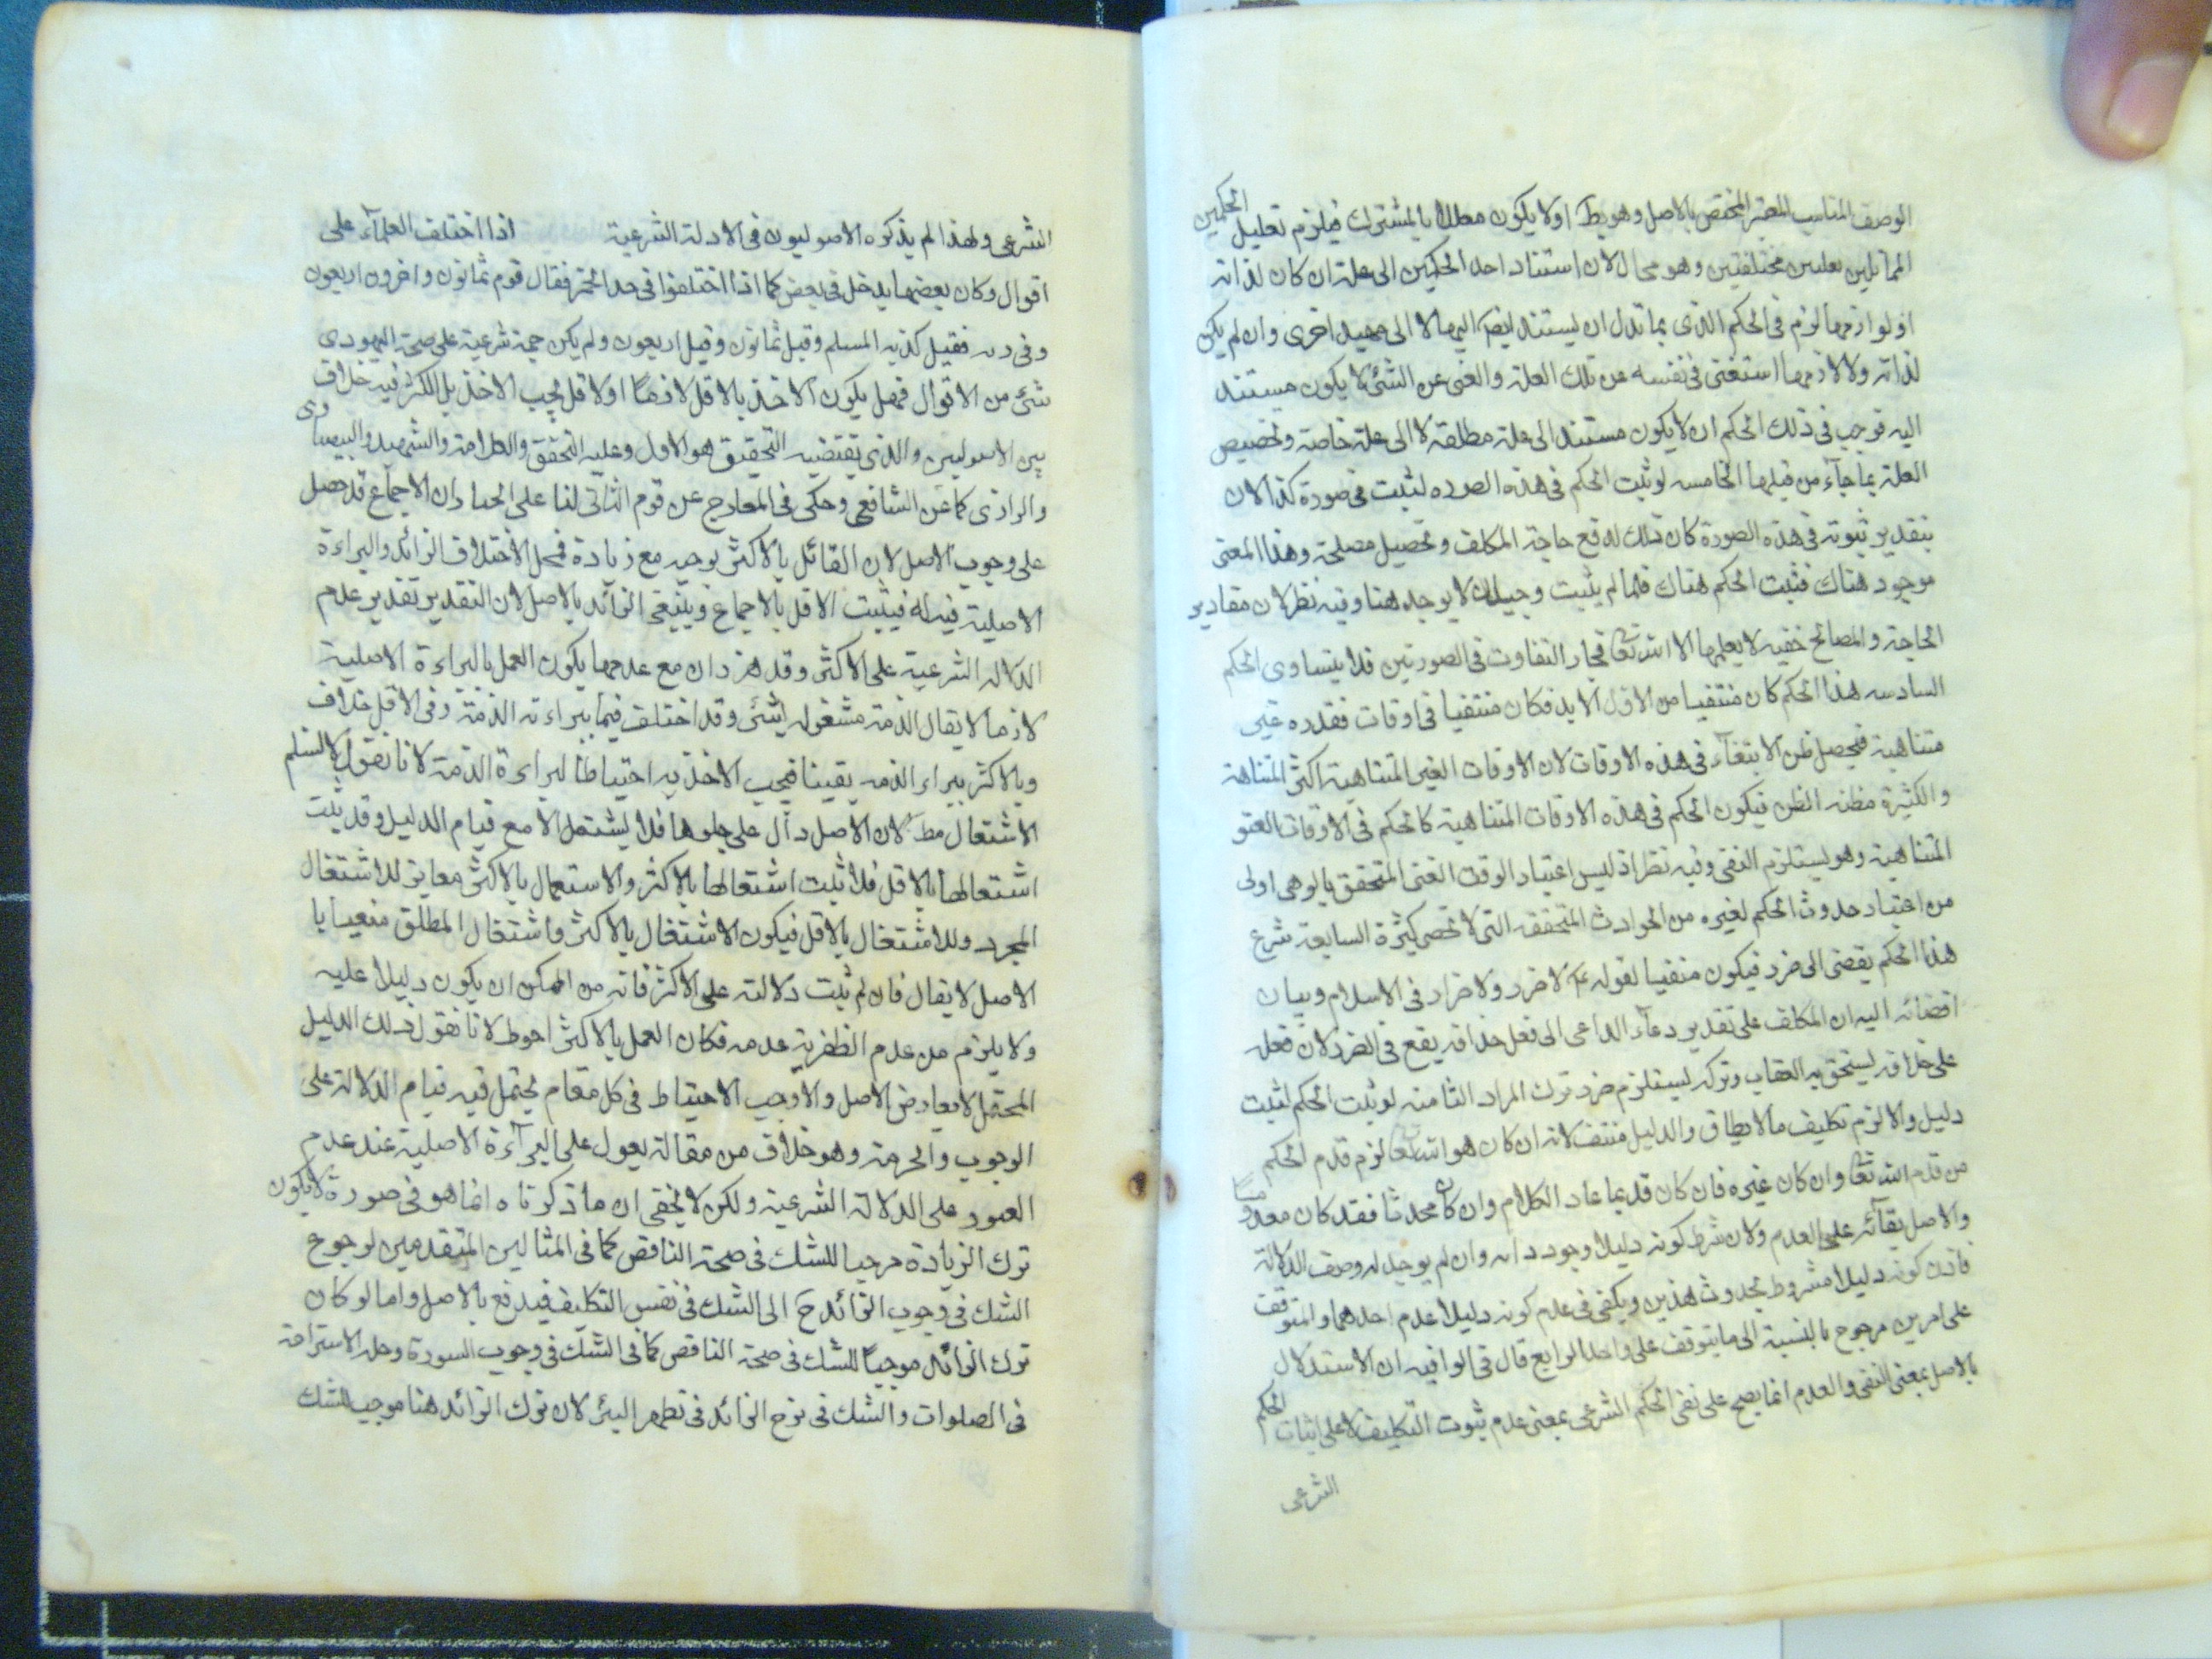 الوصف المناسب المعتبر المختص بالاصل وهو بط او لا يكون معللا بالمشترك فيلزم تعليل الحكمين
المماثلين بعلتين مختلفتين وهو محال لان استناد احد الحكمين الى علة ان كان لذاته
او لوازمها لزم فى الحكم الذى يماثل ان يستند ايضا اليها لا الى اخرى وان لم يكن
لذاته ولا لازمها استغنى فى نفسه عن تلك العلة والغنى عن الشئ لا يكون مستند
اليه فوجب فى ذلك الحكم ان لا يكون مستند الى علة مطلقة لا الى علة خاصة وتخصيص
العلة بما جاء من قبلها الخامسه لو ثبت الحكم فى هذه الصوره لثبت فى صورة كذا لان
بتقدير ثبوته فى هذه الصورة كان ذلك لدفع حاجة المكلف وتحصيل مصلحة وهذا المعنى
موجود هناك فثبت الحكم هناك فلما لم يثبت وجب ان لا يوجد هنا وفيه نظر لان مقادير
الحاجة والمصالح خفيه لا يعلمها الا الله تعا فجاز التفاوت فى الصورتين فلا يتساوى الحكم
السادسه هذا الحكم كان منتفيا من الاول الابد فكان منتفيا فى اوقات فقدره غير
متناهية فيحصل ظن الانتفاء فى هذه الاوقات لان الاوقات الغير المتناهية اكثر المتناهة
والكثيرة مظنه الظن فيكون الحكم فى هذه الاوقات المتناهية كالحكم فى الاوقات الغير
المتناهية وهو يستلزم النفى وفيه نظر اذ ليس اعتبار الوقت الغنى المتحقق بالوهى اولى
من اعتبار حدوث الحكم لغيره من الحوادث المتحققه التى لا تحصى كثرة السابعة شرع
هذا الحكم يقضى الى ضرر فيكون منفيا لقوله عم لا ضرر ولا ضرار فى الاسلام وبيان
افضائه اليه ان المكلف على تقدير دعاء الداعى الى فعل خلافه يقع فى الضرر لان فعله
على خلافه يستحق به العقاب وتركه يستلزم ضرر ترك المراد الثامنه لو ثبت الحكم لثبت
دليل والا لزم تكليف ما لا يطاق والدليل منتف لانه ان كان هو الله تعا لزم قدم الحكم
من قدم الله تعا وان كان غيره فان كان قديما عاد الكلام وان كان محدثا فقد كان معدوما
والاصل بقائه على العدم ولان شرط كونه دليلا وجود ذاته وان لم يوجد له وصف الدلالة
فاذن كونه دليلا مشروط بحدوث هذين ويكفى فى عدم كونه دليلا عدم احدهما والمتوقف
على امرين مرجوح بالنسبة الى ما يتوقف على واحد الرابع قال فى الوافيه ان الاستدلال
بالاصل بمعنى النفى والعدم انما يصح على نفى الحكم الشرعى بمعنى عدم ثبوت التكليف لا على اثبات الحكم
الشرعى
الشرعى ولهذا لم يذكره الاصوليون فى الادلة الشرعية اذا اختلف العلماء على
اقوال وكان بعضها يدخل فى بعض كما اذا اختلفوا فى حد الخمر فقال قوم ثمانون واخرون اربعون
وفى ديه فقيل كدية المسلم وقيل ثمانون وقيل اربعون ولم يكن حجة شرعية على صحة اليهودى
شئ من الاقوال فهل يكون الاخذ بالاقل لازما او لا قل يجب الاخذ بل الاكثر فيه خلاف
بين الاصوليين والذى يقتضيه التحقيق هو الاول وعليه المحقق والعلامة والشهيد والبيضاوى
والرازى كما عن الشافعى وحكى فى المعارج عن قوم الثانى لنا على الخيار ان الاجماع قد حصل
على وجوب الاصل لان القائل بالاكثر يوجبه مع زيادة فمحل الاختلاف الزائد والبراءة
الاصلية فيه له فيثبت الاقل بالاجماع وينفى الزائد بالاصل لان التقدير تقدير عدم
الدلاله الشرعية على الاكثر وقد هزر ان مع عدمها يكون العمل بالبراءة الاصلية
لازما لا يقال الذمة مشغوله بشئ وقد اختلف فيما ببراءته الذمة وفى الاقل خلاف
وبالاكثر يبراء الذمه يقينا فيجب الاخذ به احتياطا لبراءة الذمة لانا نقول لا نسلم
الاشتغال مط لان الاصل دال على خلوها فلا يشتغل الا مع قيام الدليل وقد ثبت
اشتغالها بالاقل فلا ثبت اشتغالها بالاكثر والاستعمال بالاكثر مغاير للاشتغال
المجرد وللاشتغال بالاقل فيكون الاشتغال بالاكثر واشتغال المطلق منفيا با
الاصل لا يقال فان لم ثبت دلالته على الاكثر فانه من الممكن ان يكون دليلا عليه
ولا يلزم من عدم الظفر به عدمه فكان العمل بالاكثر احوط لانا نقول ذلك الدليل
المحتمل لا يعارض الاصل والا وجب الاحتياط فى كل مقام يحتمل فيه قيام الدلالة على
الوجوب والحرمة وهو خلاف من مقالة يعول على البراءة الاصلية عند عدم
العبور على الدلالة الشرعية ولكن لا يخفى ان ما ذكرناه انما هو فى صورة لا يكون
ترك الزيادة موجبا للشك فى صحة الناقص كما فى المثالين المتقدمين لرجوع
الشك فى وجوب الزائد ح الى الشك فى نفس التكليف فيدفع بالاصل واما لو كان
ترك الزائد موجبا للشك فى صحة الناقص كما فى الشك فى وجوب السورة وجلد الاستراحة
فى الصلوات والشك فى نزح الزائد فى تطهر البئر لان ترك الزائد هنا موجب للشك